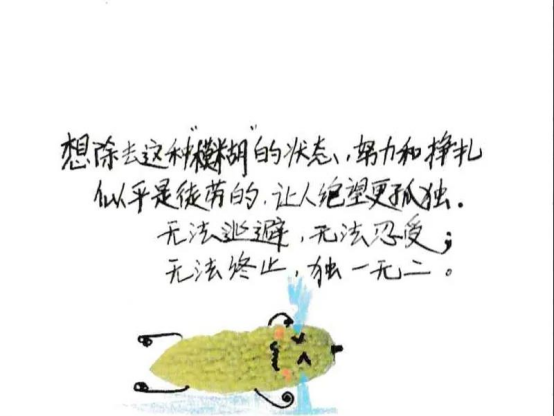 想除去这种“模糊”的状态,努力和挣扎
似乎是徒劳的,让人绝望更孤独.
无法逃避,无法忍受;
无法终止,独一无二。